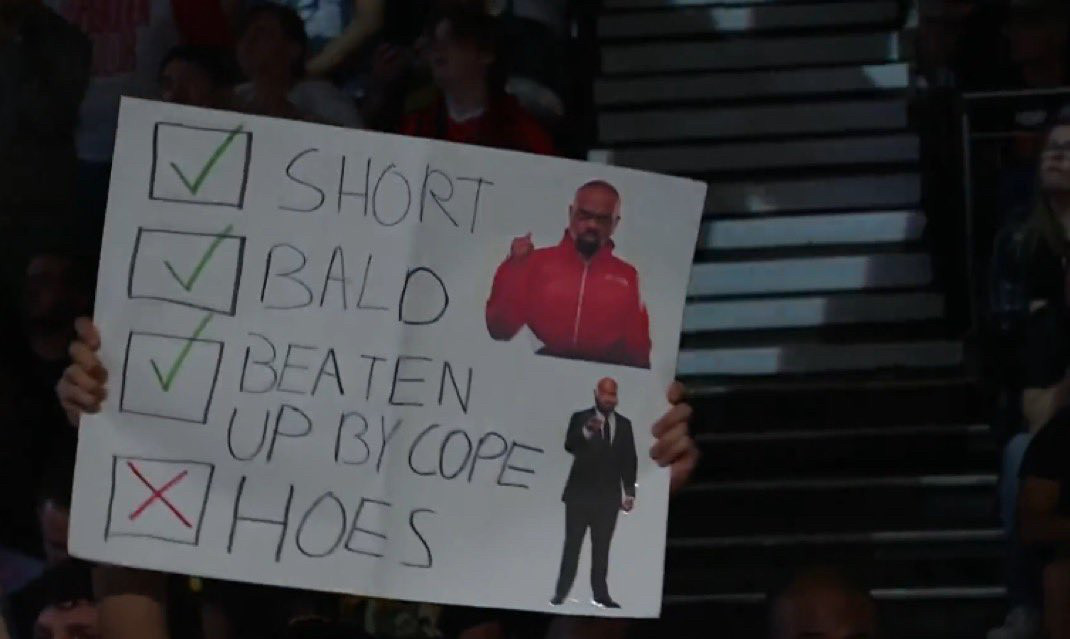 SHORT
BALD
BEATEN
UP BY COPE
HOES